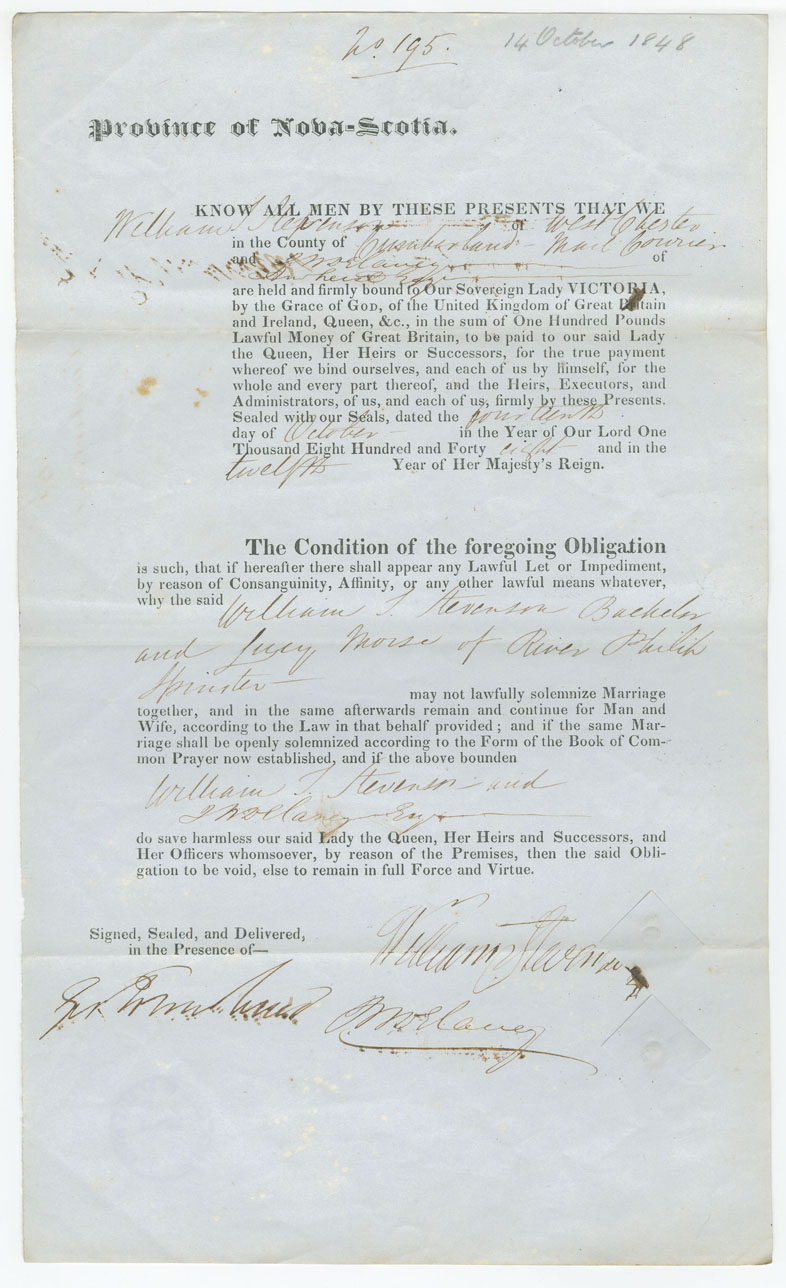 No. 195.
14 October 1848
Province of Nova-Scotia.
KNOW ALL MEN BY THESE PRESENTS THAT WE
William T Stevenson of West Chester
in the County of Cumberland Mail Courier
and of
Amherst Esqr
are held and firmly bound to Our Sovereign Lady VICTORIA,
by the Grace of GOD, of the United Kingdom of Great Britain
and Ireland, Queen, &c., in the sum of One Hundred Pounds
Lawful Money of Great Britain, to be paid to our said Lady
the Queen, Her Heirs or Successors, for the true payment
whereof we bind ourselves, and each of us by himself, for the
whole and every part thereof, and the Heirs, Executors, and
Administrators, of us, and each of us, firmly by these Presents.
Sealed with our Seals, dated the fourteenth
day of October in the Year of Our Lord One
Thousand Eight Hundred and Forty eight and in the
twelfth Year of Her Majesty's Reign.
The Condition of the foregoing Obligation
is such, that if hereafter there shall appear any Lawful Let or Impediment,
by reason of Consanguinity, Affinity, or any other lawful means whatever,
why the said William T. Stevenson Bachelor
and Lucy Morse of River Philip
Spinster
may not lawfully solemnize Marriage
together, and in the same afterwards remain and continue for Man and
Wife, according to the Law in that behalf provided; and if the same Mar-
riage shall be openly solemnized according to the Form of the Book of Com-
mon Prayer now established, and if the above bounden
William T. Stevenson and
Esqr
do save harmless our said Lady the Queen, Her Heirs and Successors, and
Her Officers whomsoever, by reason of the Premises, then the said Obli-
gation to be void, else to remain in full Force and Virtue.
Signed, Sealed, and Delivered,
in the Presence of—
William Stevenson
Townshend